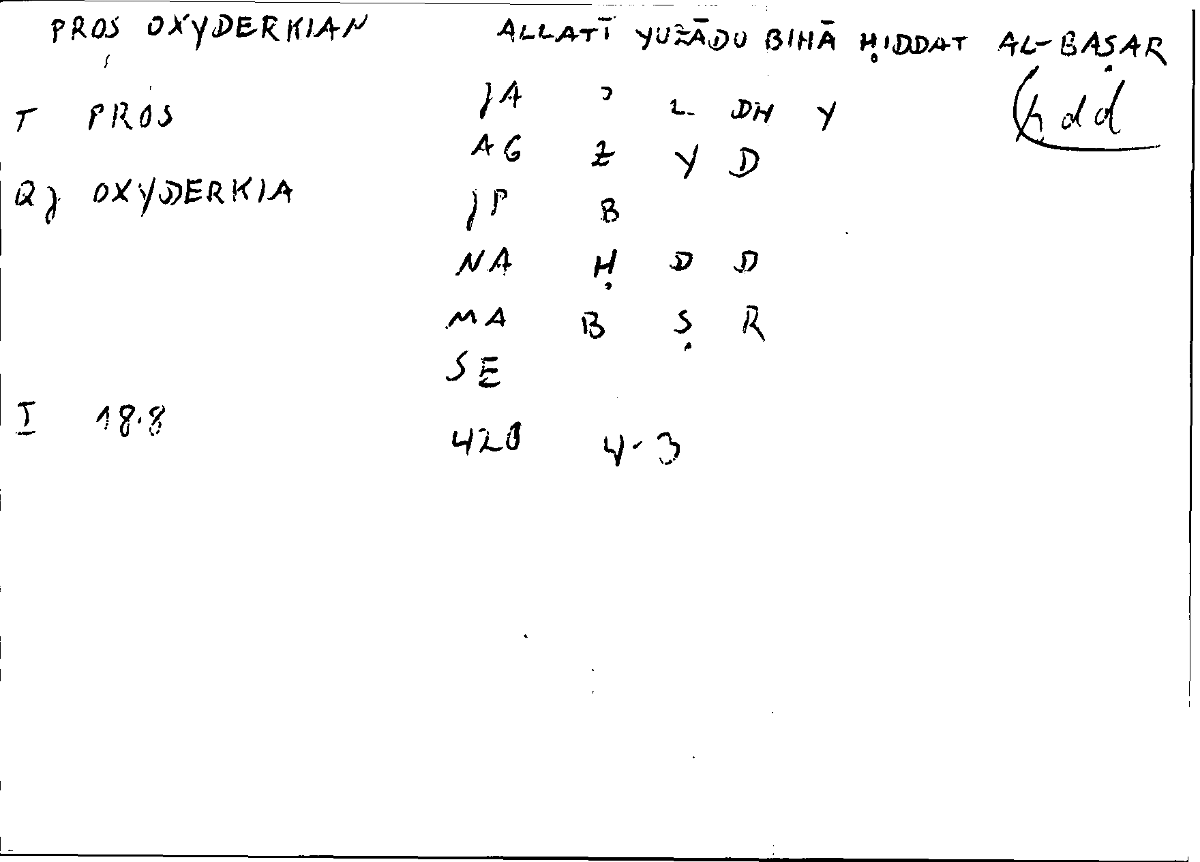 PROS OXYDERKIAN ALLATĪ YUZĀDU BIHĀ ḤIDDAT AL-BAṢAR
T PROS JA ʾ L DH Y ḥdd
AG Z Y D
QJ OXYDERKIA JP B
NA Ḥ D D
MA B Ṣ R
SE
I 18.8 420 4-3